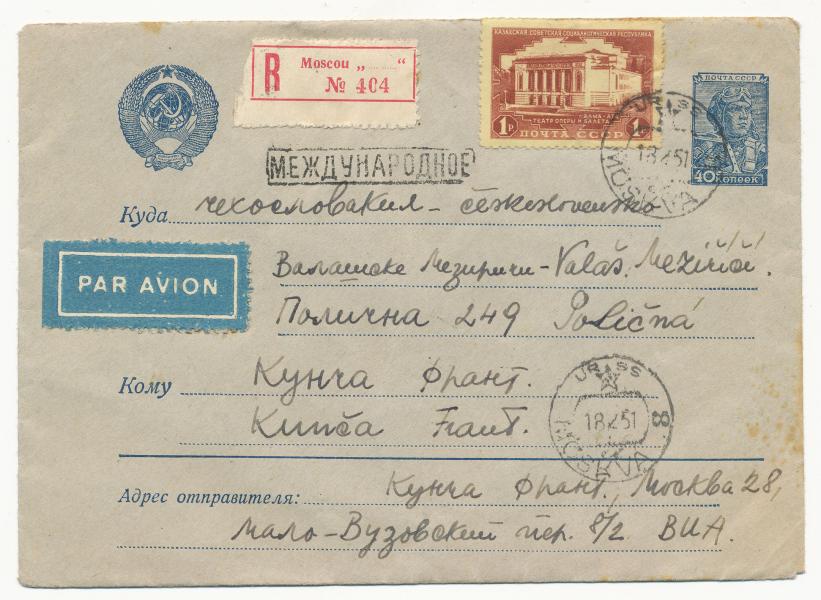 R Moscou „ “
№ 404
КАЗАХСКАЯ СОВЕТСКАЯ СОЦИАЛИСТИЧЕСКАЯ РЕСПУБЛИКА
АЛМА-АТА
ТЕАТР ОПЕРЫ И БАЛЕТА
1Р ПОЧТА СССР 1Р
ПОЧТА СССР
40 КОПЕЕК
UR SS
18 51
MOSKVA
МЕЖДУНАРОДНОЕ
Куда чехословакия - československo
PAR AVION
Валашске Мезиричи - Valaš. Meziříčí.
Полична 249 Poličná
Кому Кунча франт.
Kunča Frant.
UR SS
18 51
MOSKVA
8
Адрес отправителя: Кунча франт., Москва 28,
мало-Вузовский пер. 8/2 ВИА.